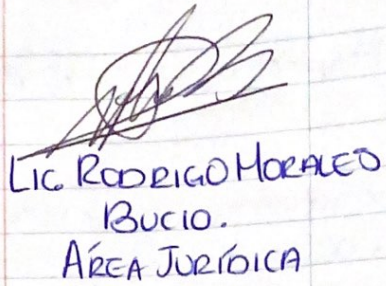 LIC. RODRIGO MORALES
BUCIO.
ÁREA JURÍDICA